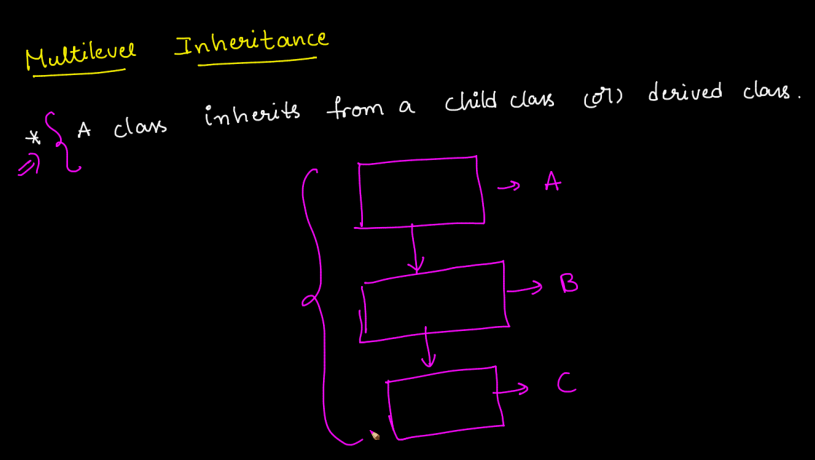 Multilevel Inheritance
* A class inherits from a child class (or) derived class.
A
B
C